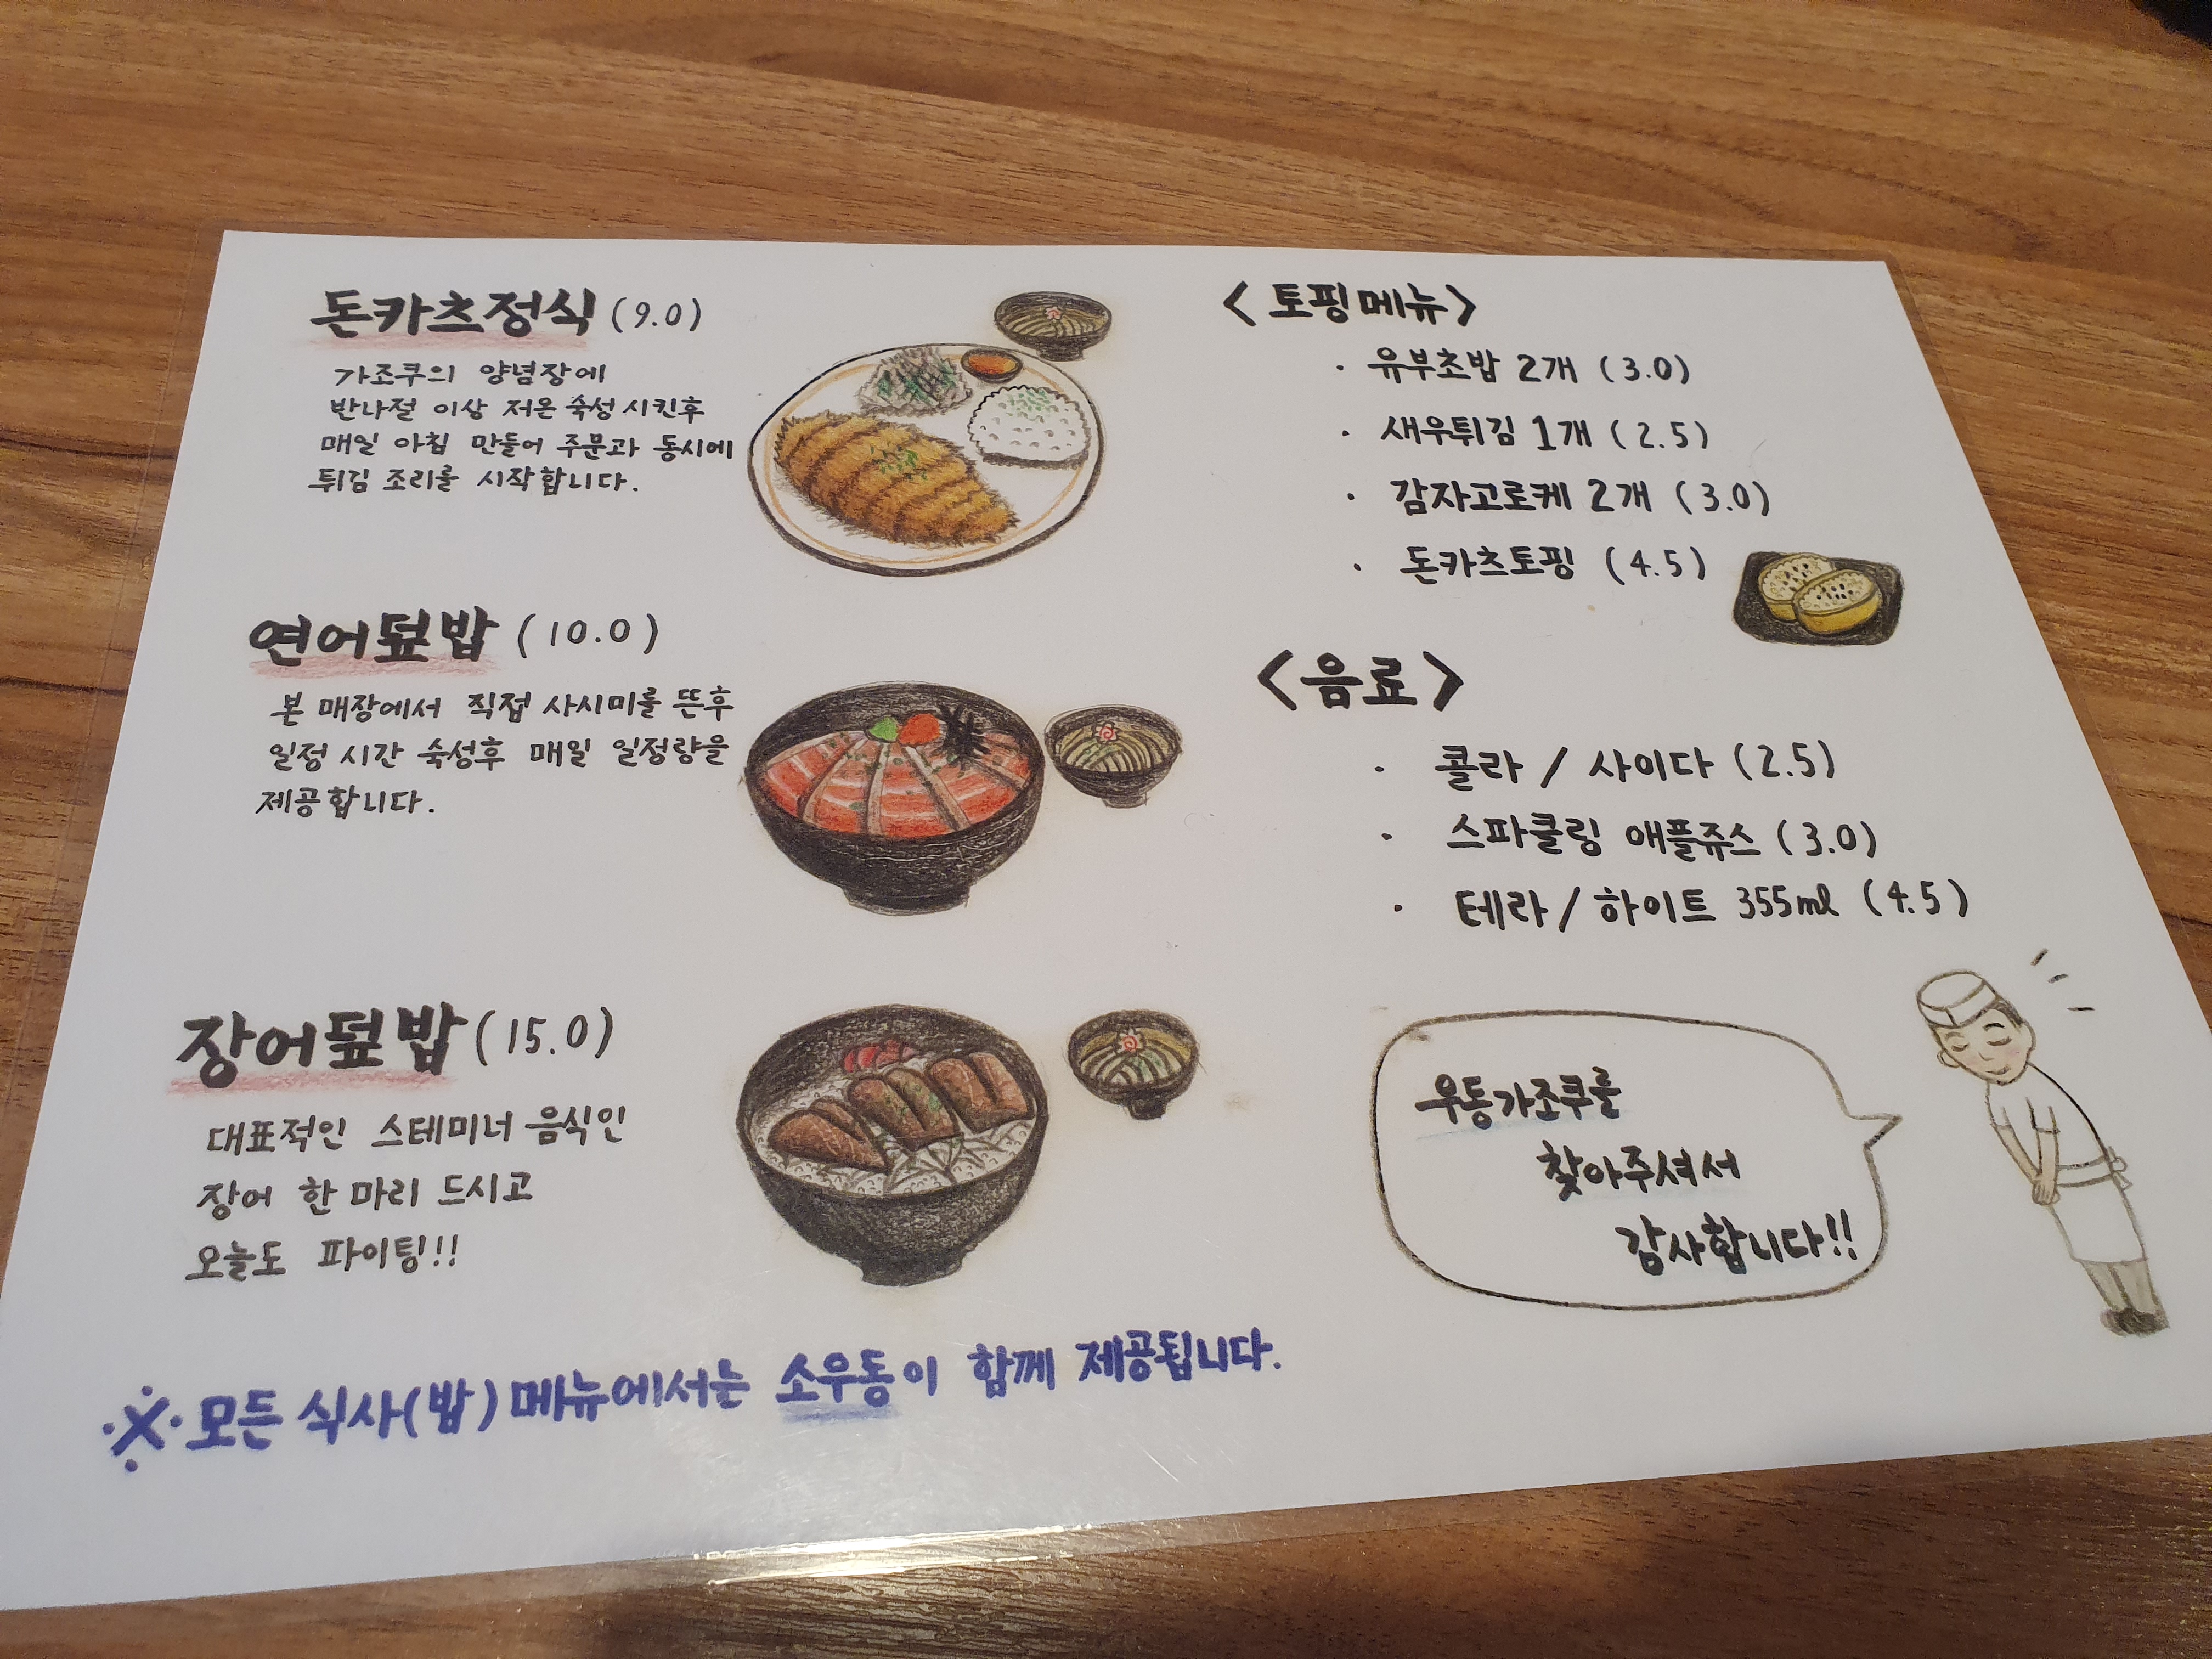 돈카츠정식 (9.0)
가조쿠의 양념장에
반나절 이상 저온 숙성 시킨후
매일 아침 만들어 주문과 동시에
튀김 조리를 시작합니다.
연어덮밥 (10.0)
본 매장에서 직접 사시미를 뜬후
일정 시간 숙성후 매일 일정량을
제공합니다.
장어덮밥 (15.0)
대표적인 스테미너 음식인
장어 한 마리 드시고
오늘도 파이팅!!
※ 모든 식사(밥) 메뉴에서는 소우동이 함께 제공됩니다.
< 토핑메뉴 >
· 유부초밥 2개 (3.0)
· 새우튀김 1개 (2.5)
· 감자고로케 2개 (3.0)
· 돈카츠토핑 (4.5)
< 음료 >
· 콜라 / 사이다 (2.5)
· 스파클링 애플쥬스 (3.0)
· 테라 / 하이트 355ml (4.5)
우동가조쿠를
찾아주셔서
감사합니다!!